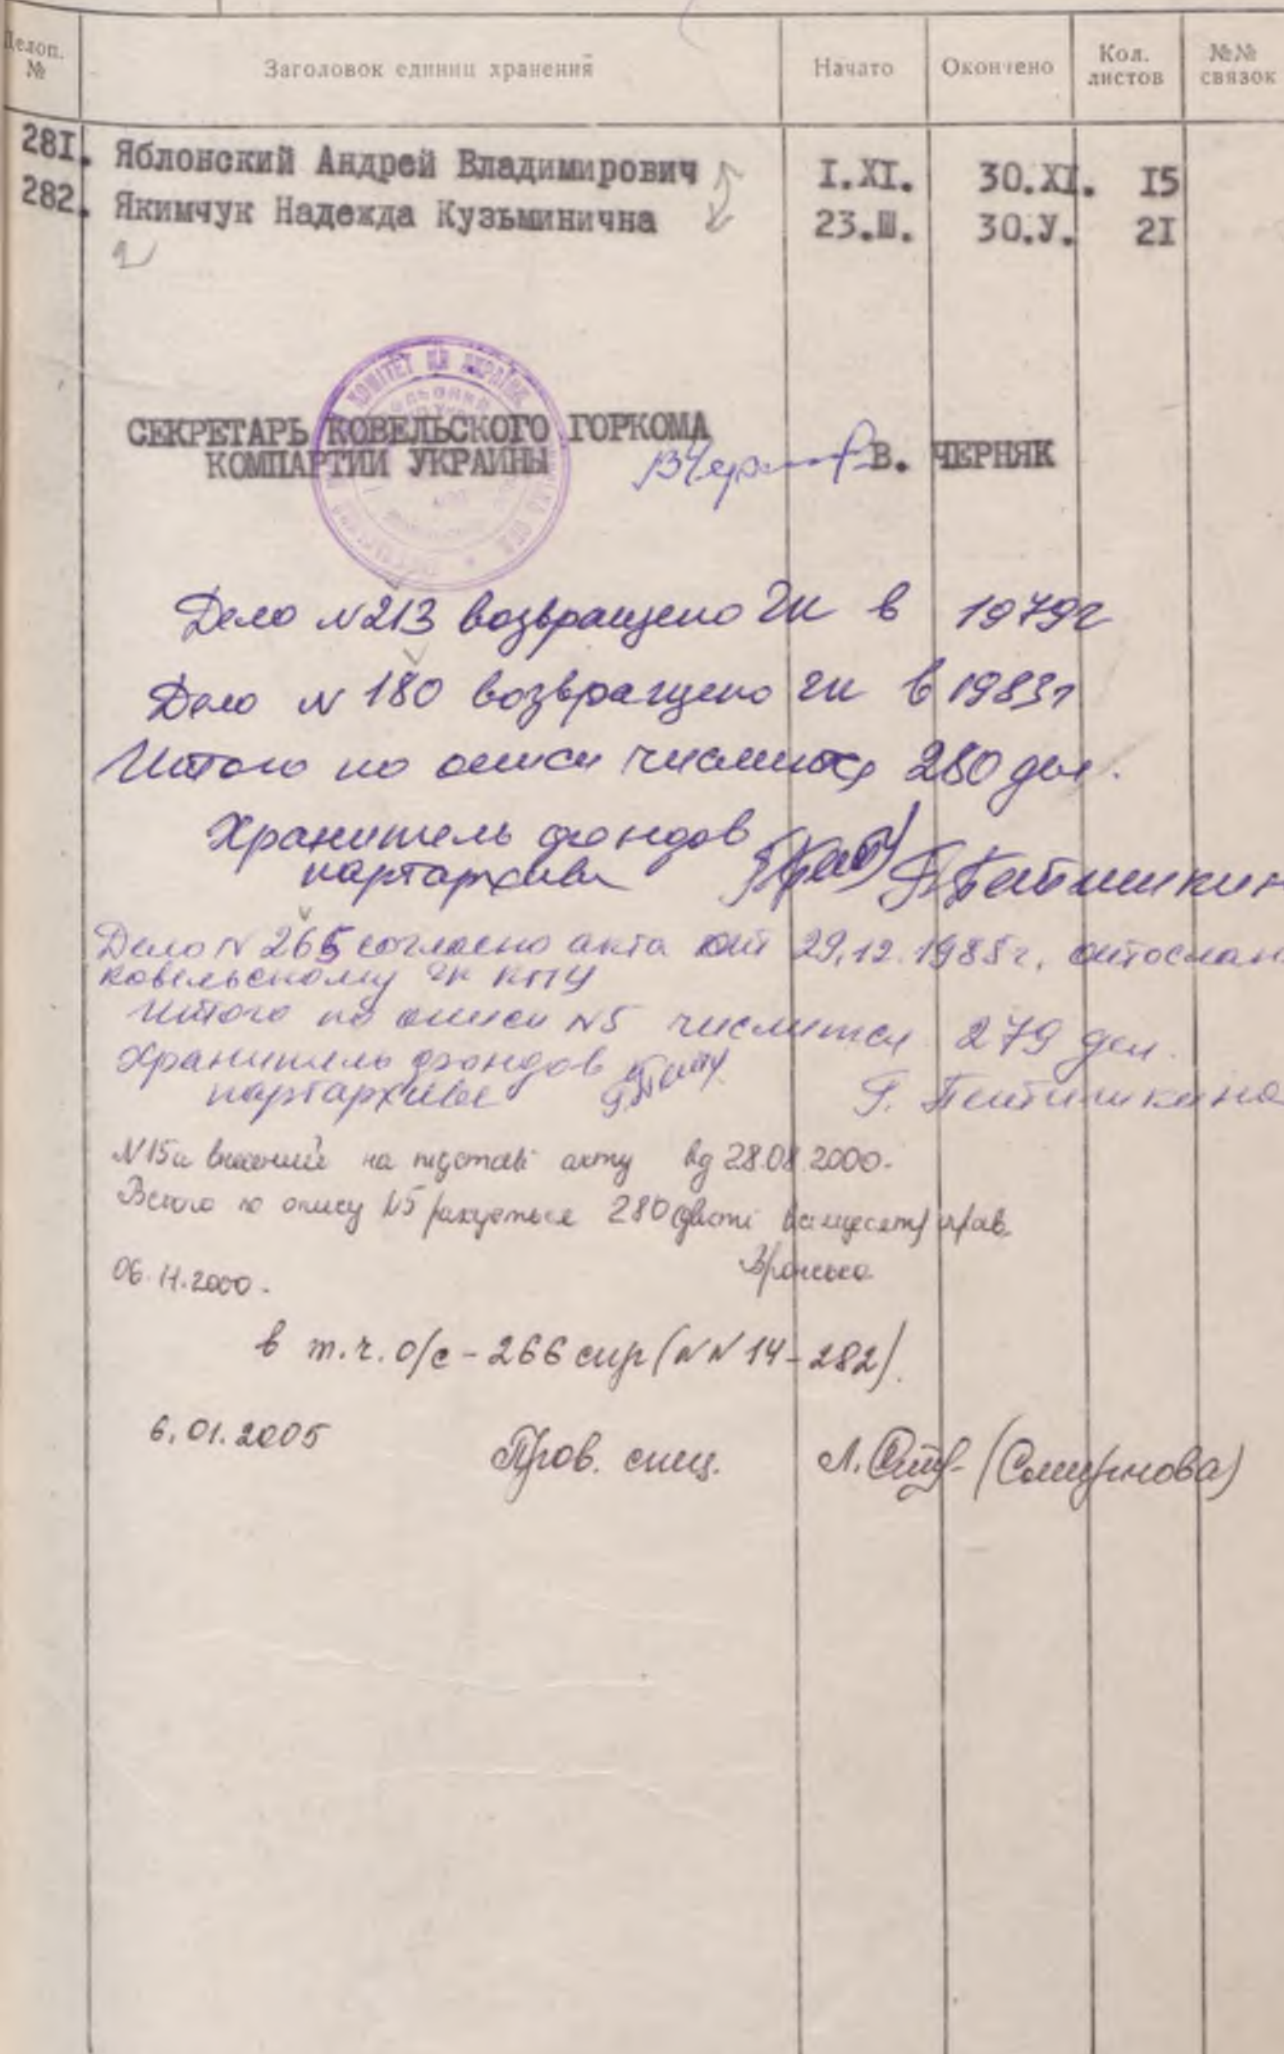 Делоп. №
Заголовок единиц хранения
Начато
Окончено
Кол. листов
№№ связок
281. Яблонский Андрей Владимирович I.XI. 30.XI. I5
282. Якимчук Надежда Кузьминична 23.Ш. 30.У. 2I
КОМІТЕТ КП УКРАЇНИ
СЕКРЕТАРЬ КОВЕЛЬСКОГО ГОРКОМА
КОМПАРТИИ УКРАИНЫ В. ЧЕРНЯК
Дело N 213 возвращено ГК в 1979г
Дело N 180 возвращено ГК в 1983г
Итого по описи числится 280 дел.
Хранитель фондов
партархива
Дело N 265 согласно акта от 29.12.1985г. отослан
Ковельскому ГК КПУ
Итого по описи N5 числится 279 дел.
Хранитель фондов
партархива Г.
N 15а внесений на підставі акту від 28.08.2000.
Всього по опису N5 рахується 280 (двісті вісімдесят) справ.
06.11.2000.
в т.ч. о/с - 266 спр (NN 14-282).
6.01.2005 Пров. спец. Л. (Смирнова)